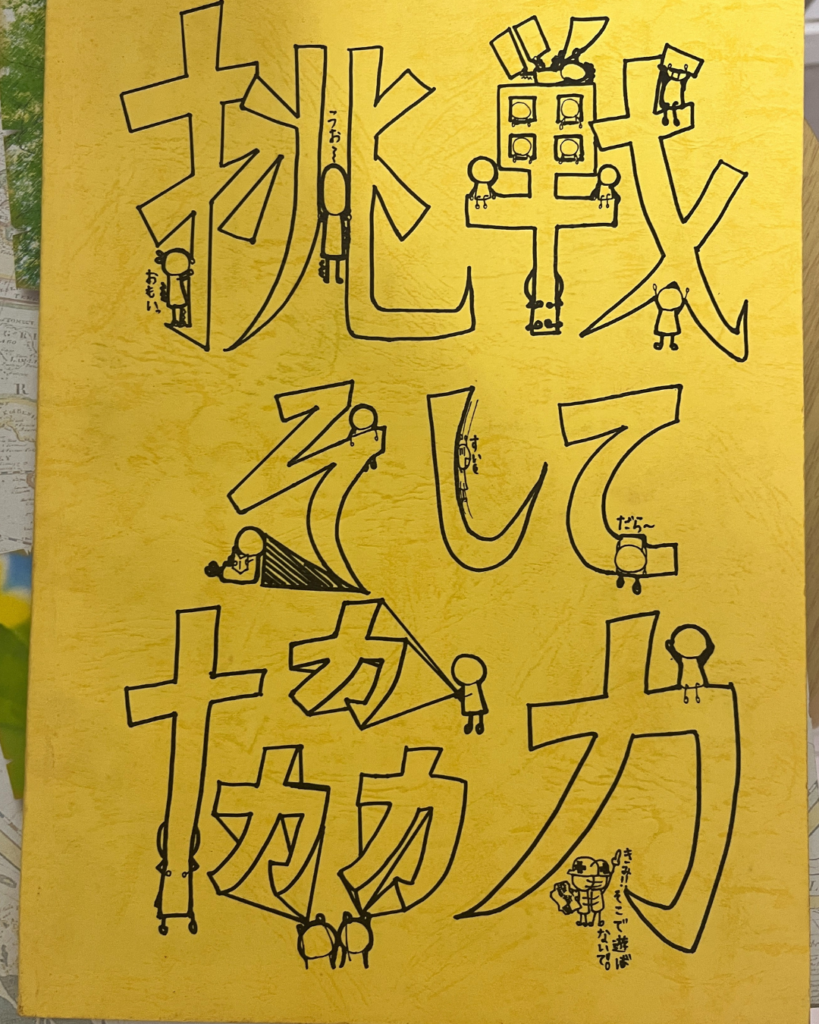 挑戦
うお〜
おもい。
そして
すい〜
だら〜
協力
きみ!!そこで遊ば
ないで。